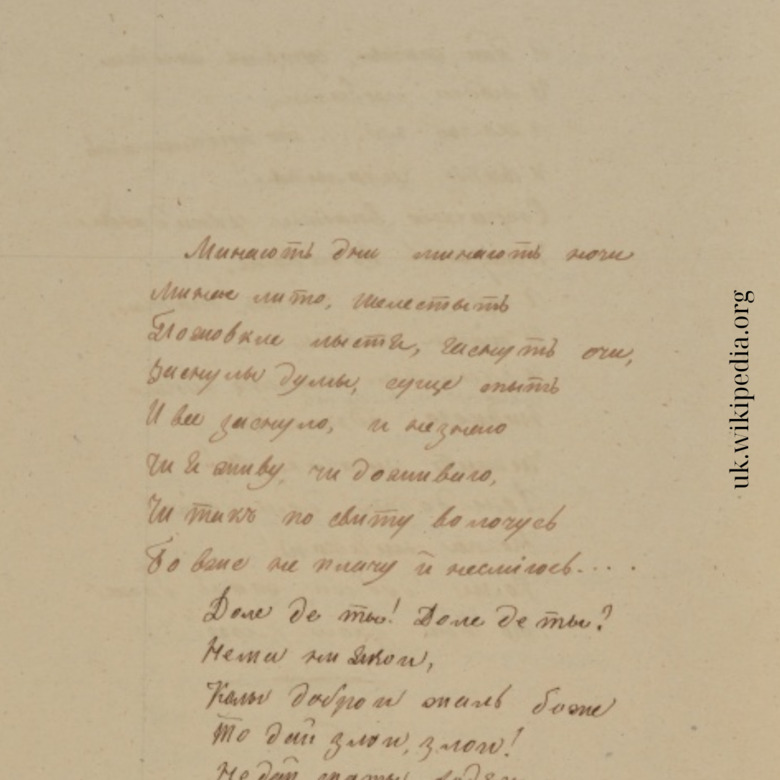 Минають дни минають ночи
Минае лито, шелестыть
Пожовкле лыстя, гаснуть очи,
Заснулы думы, серце спыть
И все заснуло, и незнаю
Чи я живу, чи доживаю,
Чи такъ по свиту волочусь
Бо вже не плачу й несміюсь....
Доле де ты! Доле де ты?
Нема ни якои,
Колы доброи жаль боже
То дай злои, злои!
Не дай спаты
uk.wikipedia.org